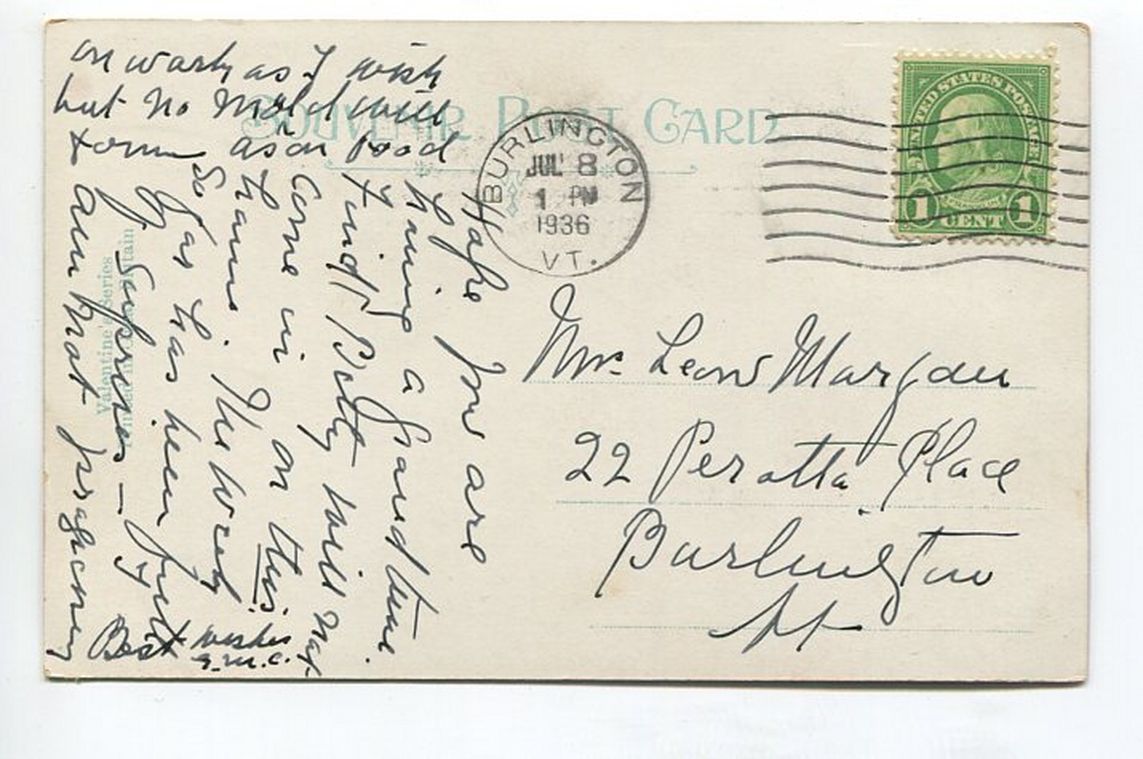 SOUVENIR POST CARD
BURLINGTON
JUL 8
1 PM
1936
VT.
UNITED STATES POSTAGE
FRANKLIN
1 CENT 1
Valentine's Series
Printed in Great Britain
Mrs. Leon Morgan
22 Place
Burlington
Vt
Hope you are
having a grand time.
& find Betty will not
come in on this
. The week
So far has been full
of Surprises —
am not progressing
on work as I wish
but no
as on food
Best wishes